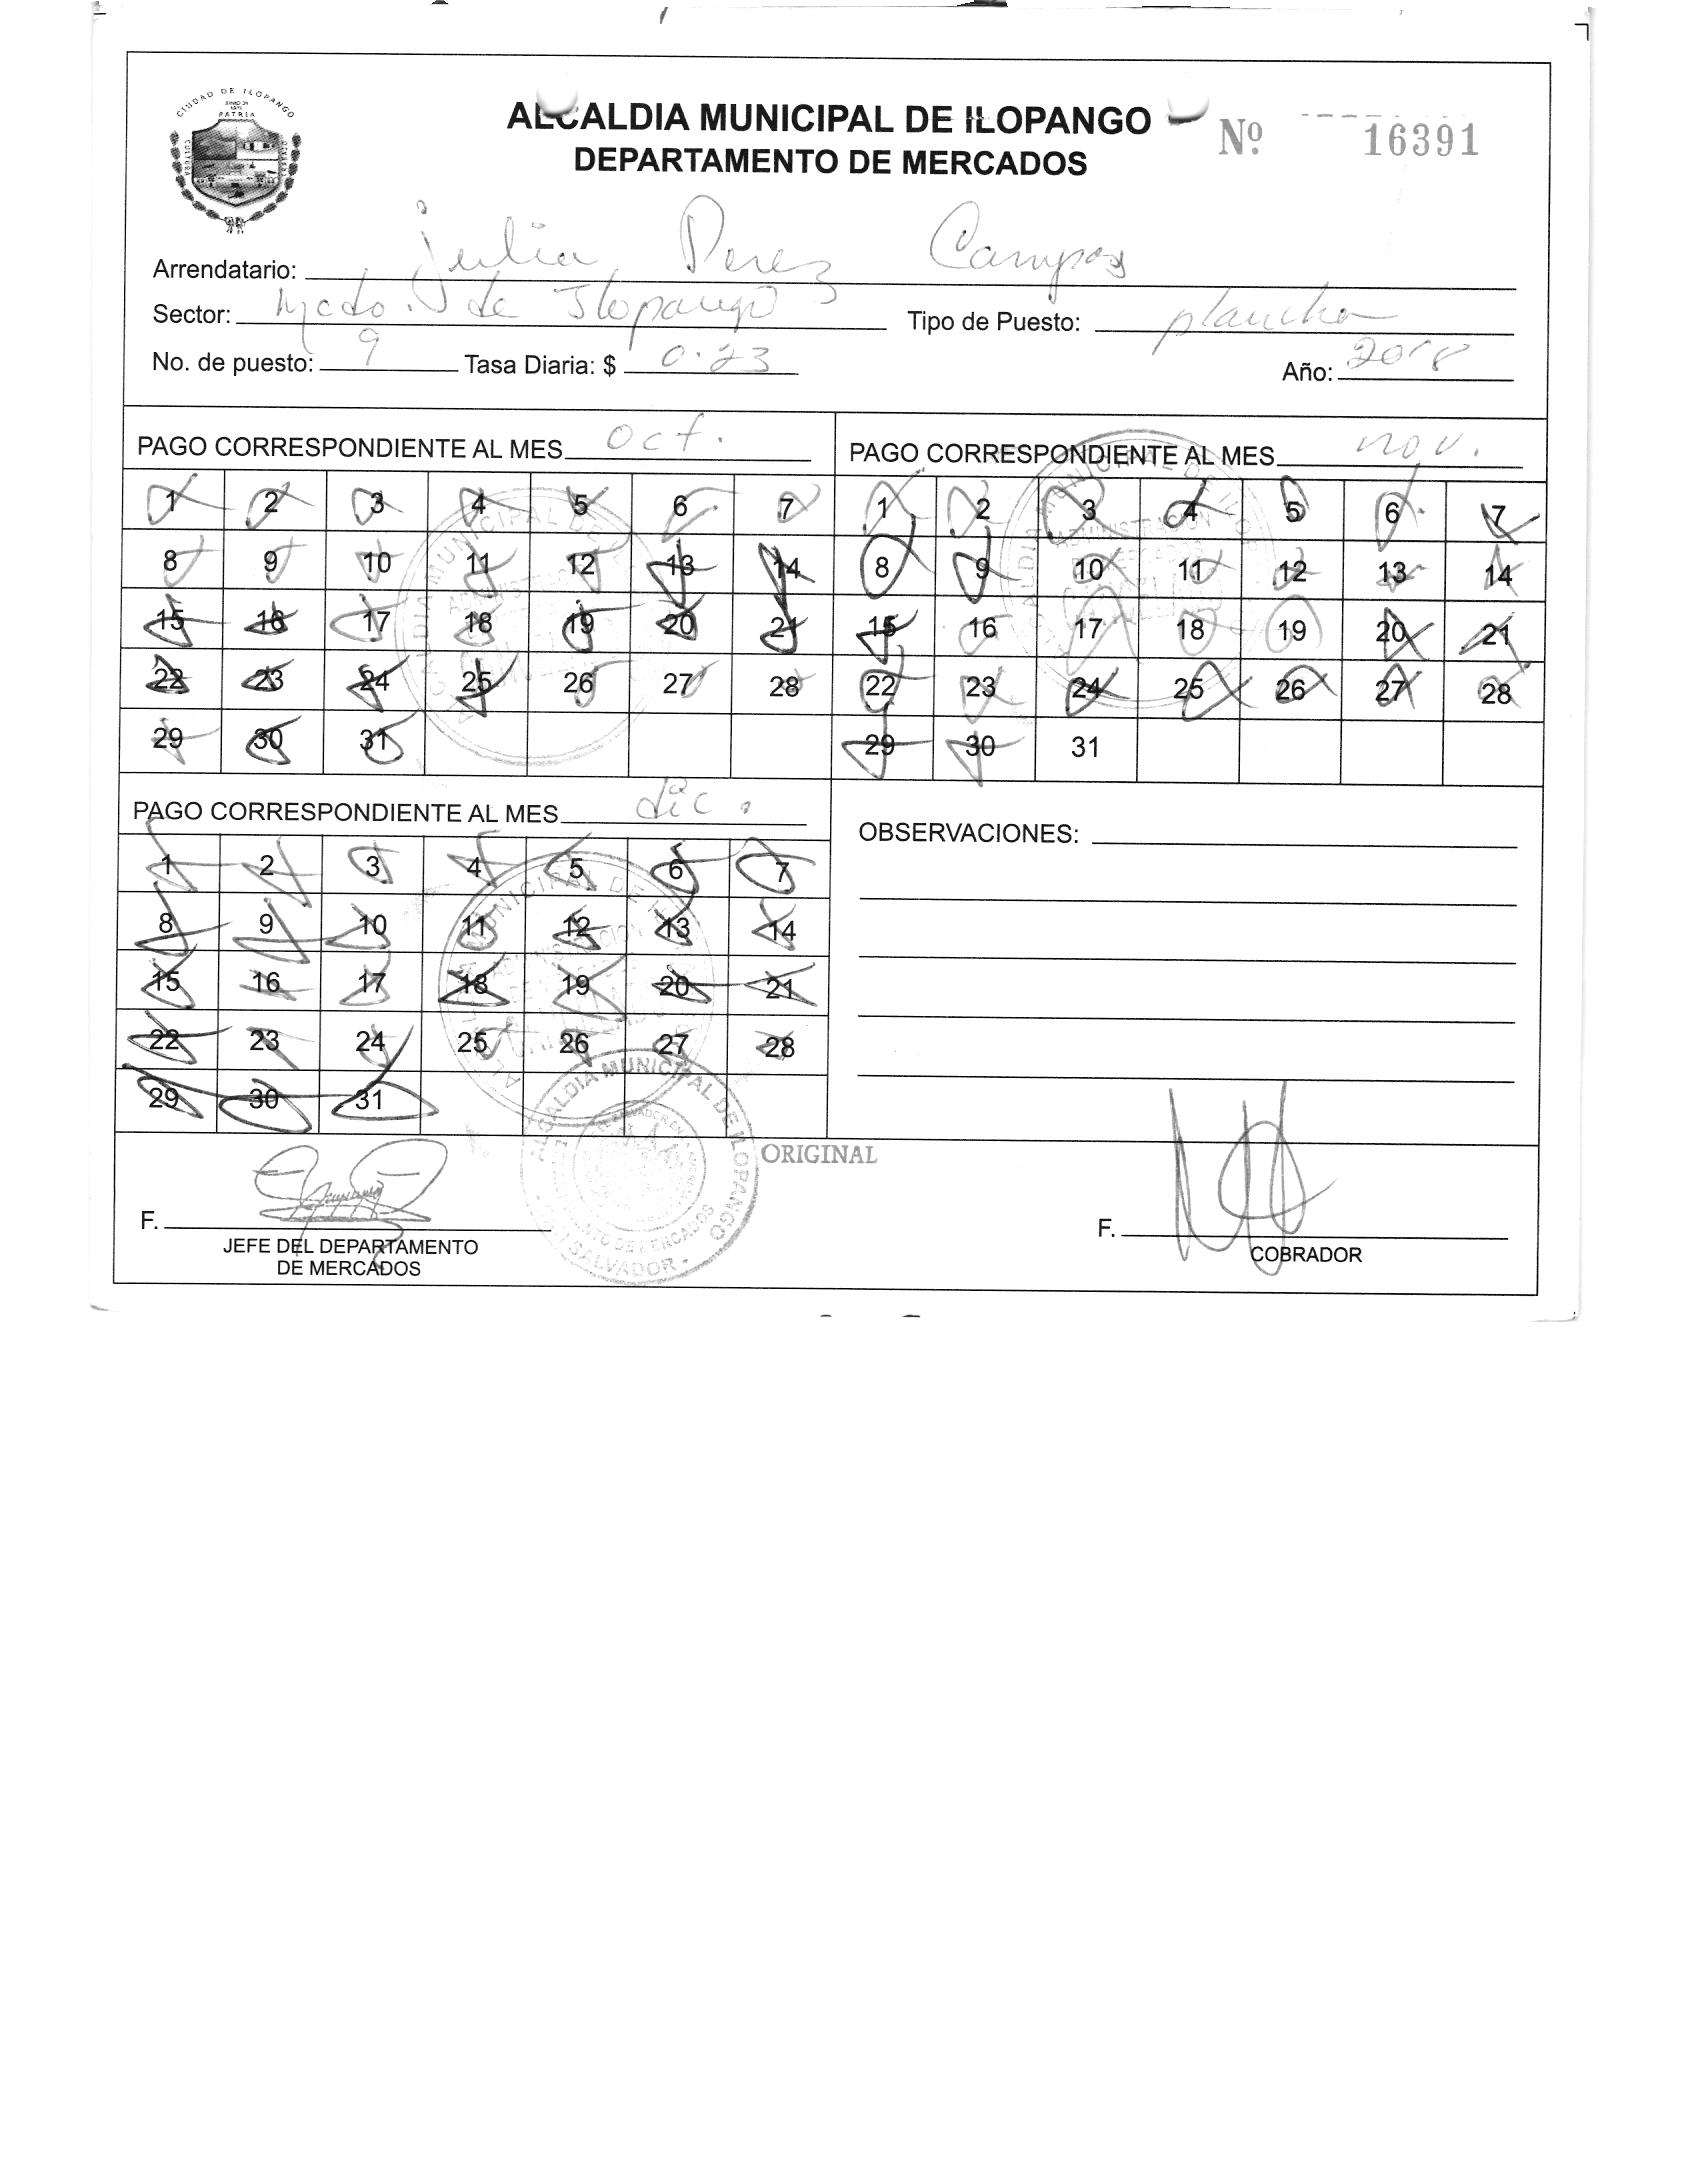 CIUDAD DE ILOPANGO
PATRIA
ALCALDIA MUNICIPAL DE ILOPANGO
Nº 16391
DEPARTAMENTO DE MERCADOS
Arrendatario: Julia Perez Campos
Sector: Mcdo. de Ilopango Tipo de Puesto: plancha
No. de puesto: 9 Tasa Diaria: $ 0.23 Año: 2018
PAGO CORRESPONDIENTE AL MES oct.
1 2 3 4 5 6 7
8 9 10 11 12 13 14
15 16 17 18 19 20 21
22 23 24 25 26 27 28
29 30 31
PAGO CORRESPONDIENTE AL MES nov.
1 2 3 4 5 6 7
8 9 10 11 12 13 14
15 16 17 18 19 20 21
22 23 24 25 26 27 28
29 30 31
PAGO CORRESPONDIENTE AL MES dic.
1 2 3 4 5 6 7
8 9 10 11 12 13 14
15 16 17 18 19 20 21
22 23 24 25 26 27 28
29 30 31
OBSERVACIONES:
ALCALDIA MUNICIPAL DE ILOPANGO
SALVADOR
ORIGINAL
F.
JEFE DEL DEPARTAMENTO
DE MERCADOS
F.
COBRADOR